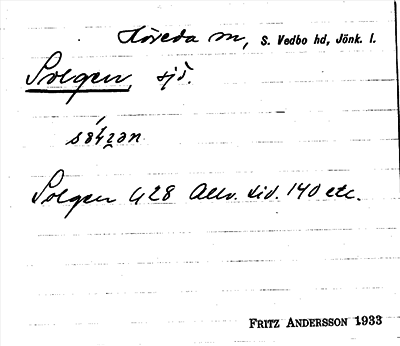 Höreda sn, S. Vedbo hd, Jönk. l.
Solgen, sjö.
Solgen 428 Allv. sid. 140 etc.
FRITZ ANDERSSON 1933